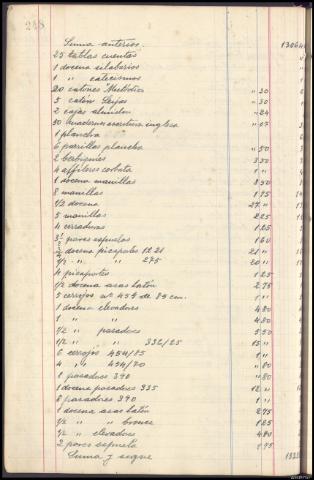 248
Suma anterior. 13064
25 tablas cuentas
1 docena silabarios
1 " catecismos
20 catones "Metódico " 20
3 catón Seijas " 30
2 cajas almidon " 24
50 cuadernos escritura inglesa " 07
1 plancha
6 parrillas plancha " 50
2 berbiquies 3 50
4 alfileres corbata 1 "
1 docena manillas 3 50
8 manillas 1 75
1/2 docena 27 "
5 manillas 2 25
4 cerraduras 1 25
pares espuelas 1 60
docena picaportes 12 21 21 "
1/2 " " 275 20 "
4 picaportes 1 25
1/2 docena asas latón 2 75
5 cerrojos nº 454 de 85 cm. 1 "
1 docena elevadores 4 80
1 " " 4 80
1/2 " pasadores 5 50
1/2 " " 332/25 15 "
6 cerrojos 454/85 1 "
4 " 454/70 " 80
1 pasadores 390 1 "
1 docena pasadores 335 12 "
8 pasadores 390 1 "
1 docena asas latón 2 75
1/2 " " bronce 1 25
1/2 " elevadores 4 80
2 pares espuela 1 75
Suma y sigue